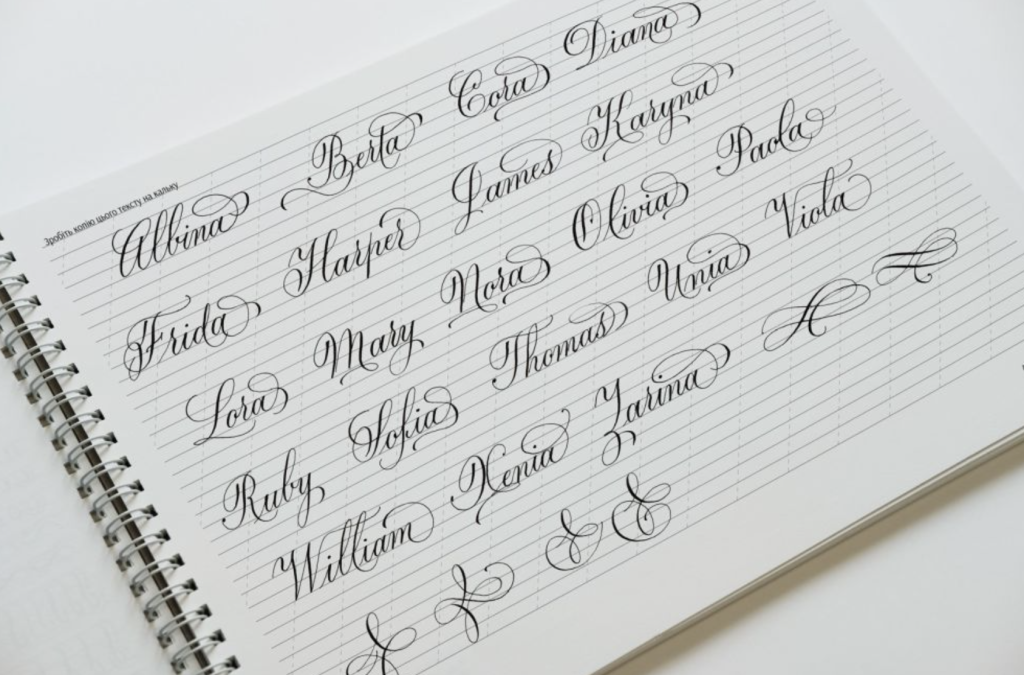 Зробіть копію цього тексту на кальку
Albina Berta Cora Diana
Frida Harper James Karyna
Lora Mary Nora Olivia Paola
Ruby Sofia Thomas Unia Viola
William Xenia Zarina